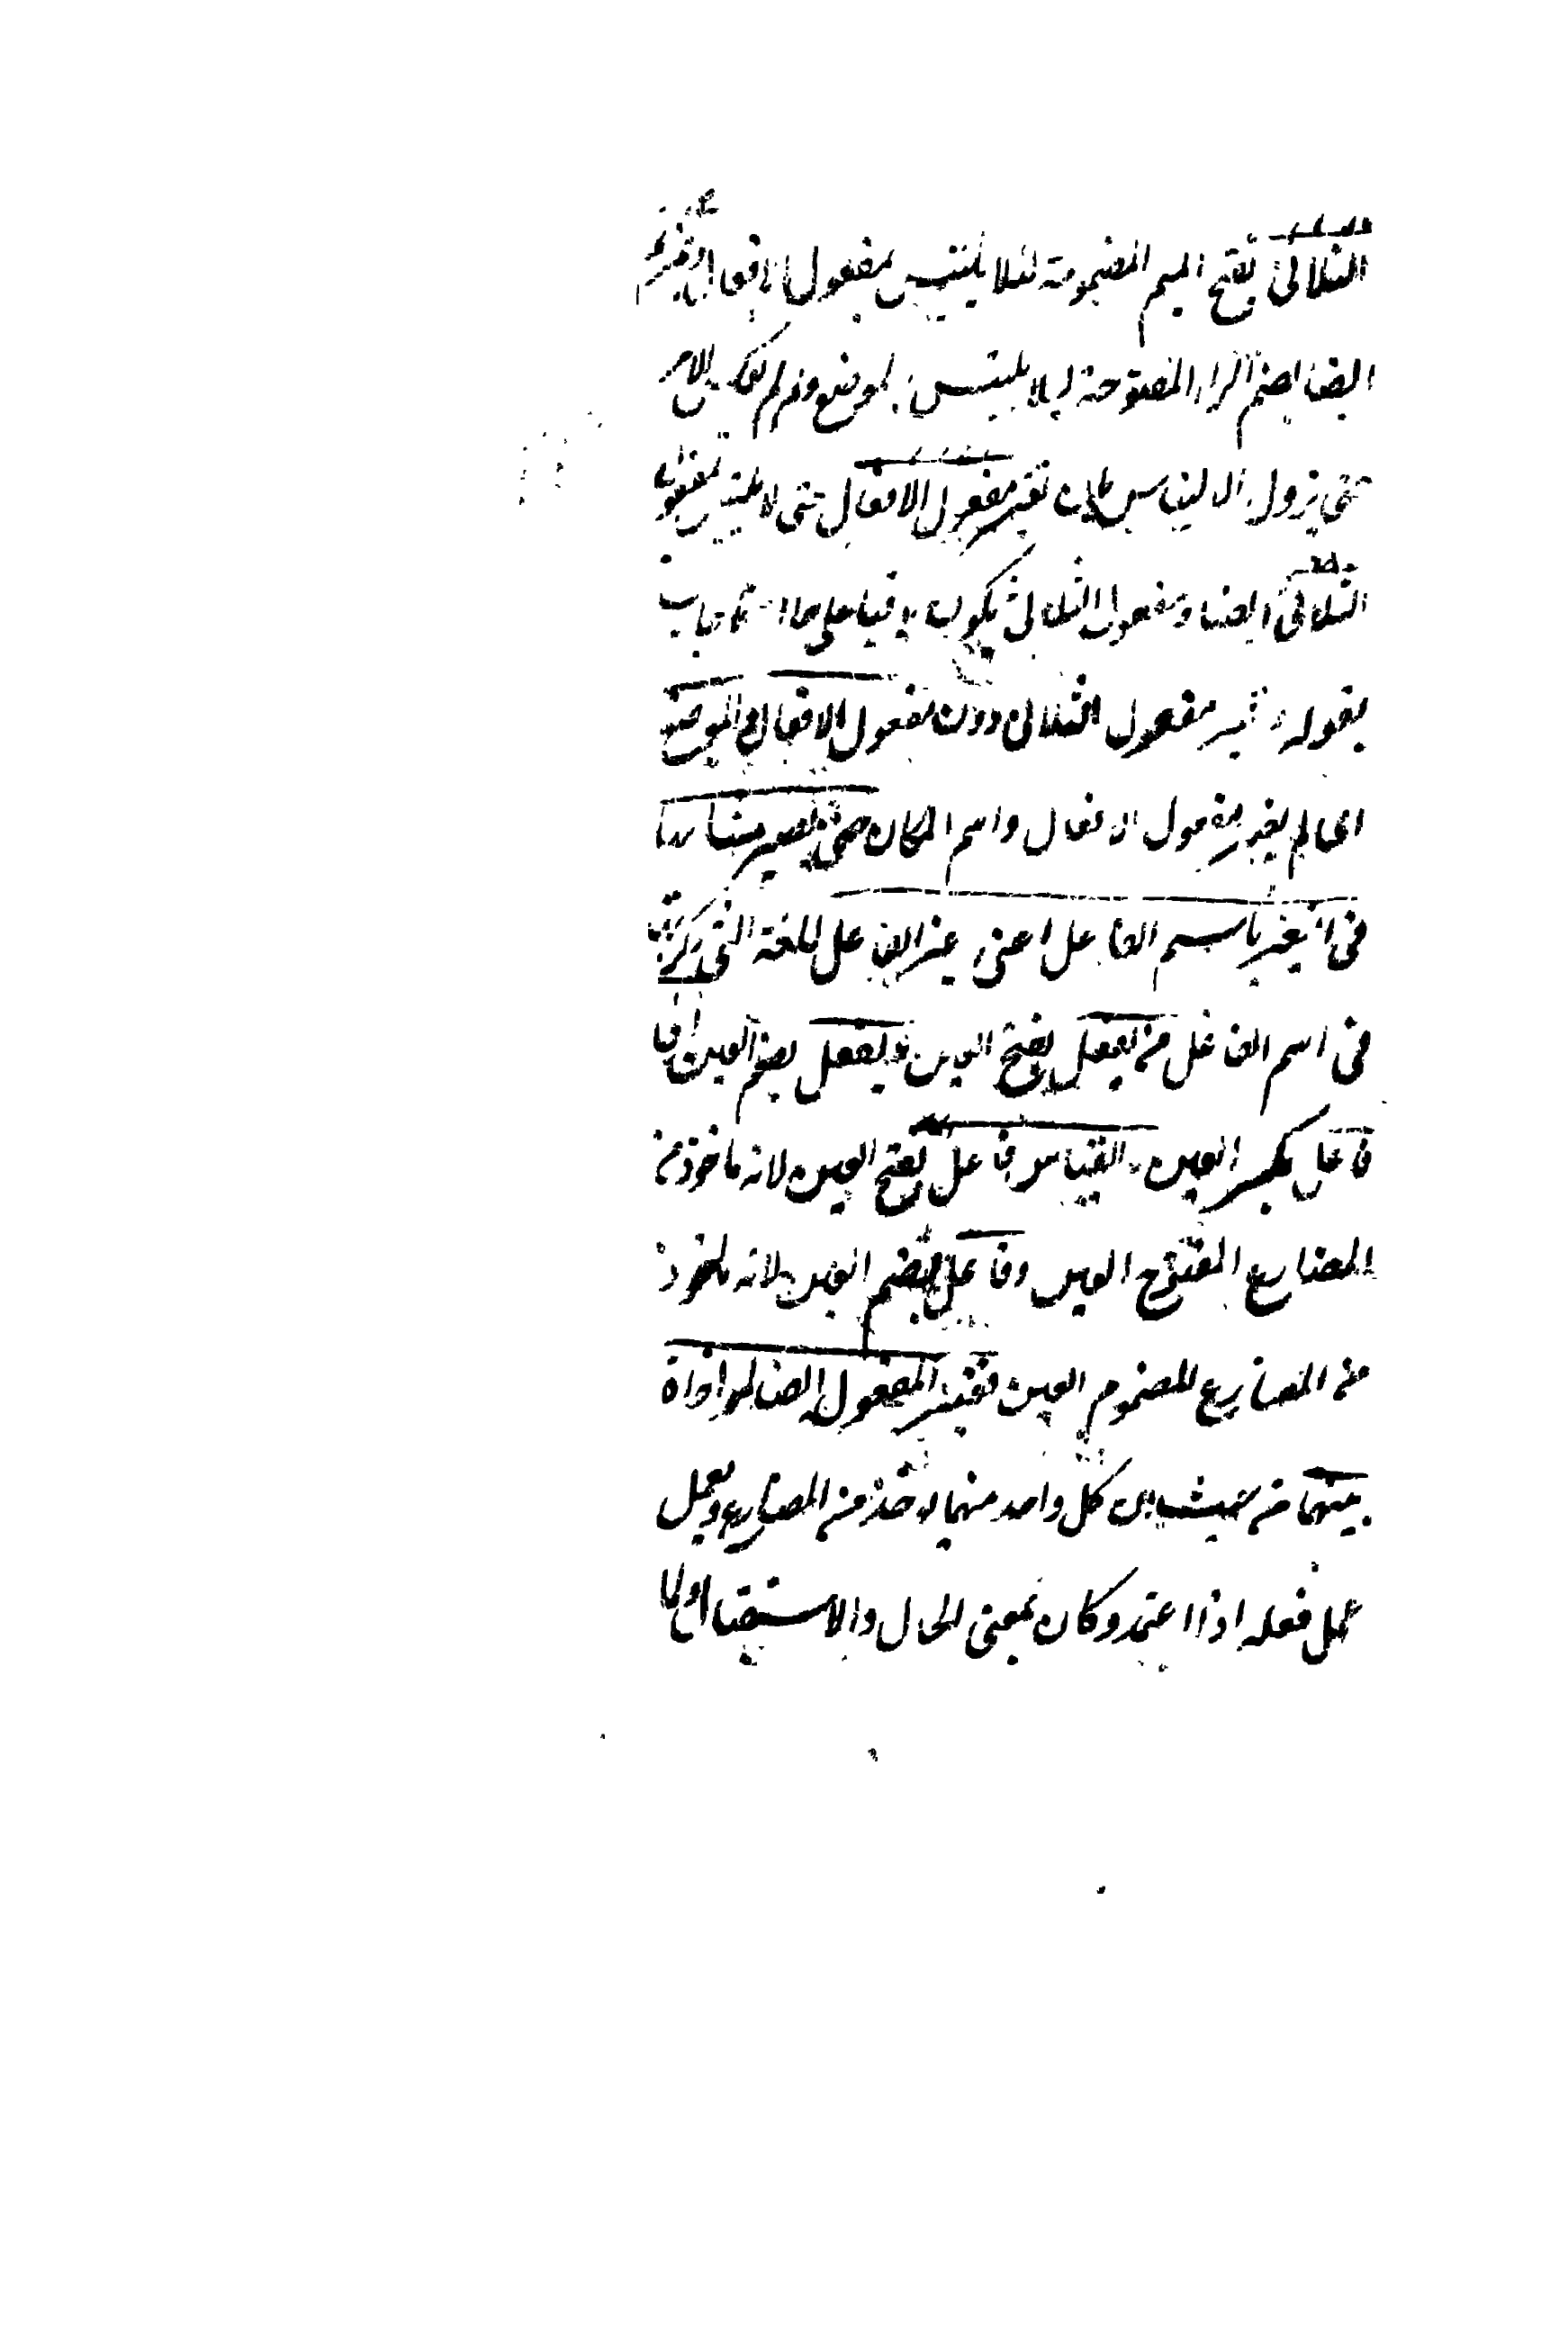 الثلاثى بفتح الميم المضمومة لئلا يلتبس بمفعول الافعال وتغيرتم
ايضا بضم الراء المفتوحة ليلا يلتبس بالموضع ولم لم يعكس الامر
حتى يزول الالتباس بان تغير مفعول الافعال حتى لا يلتبس بمفعول
الثلاثى ايضا ومفعول الثلاثى يكون باقيا على حاله فاجاب
بقوله وغير مفعول الثلاثى دون مفعول الافعال والموضع
اى لم يغير مفعول الافعال واسم المكان حتى يصير مشابها
فى التغير باسم الفاعل اعنى غير الفاعل للغة التى ذكرت
فى اسم الفاعل من يفعل بفتح العين ويفعل بضم العين الى
فاعل بكسر العين والقياس فاعل بفتح العين لانه ماخوذ من
المضارع المفتوح العين وفاعل بضم العين لانه ماخوذ
من المضارع المضموم العين فغير المفعول ايضا لمواخاة
بينهما من حيث ان كل واحد منهما ياخذ من المضارع ويعمل
عمل فعله اذا اعتمد وكان بمعنى الحال والاستقبال ولما